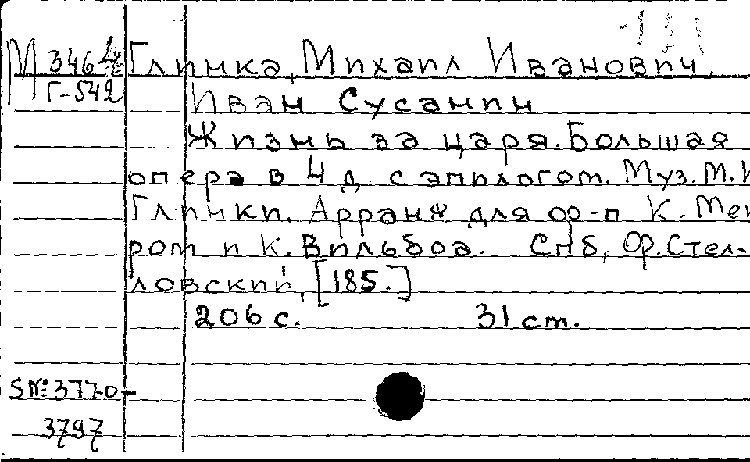 М 3464 Глинка, Михаил Иванович.
Г-542 Иван Сусанин
Жизнь за царя. Большая
опера в 4 д с эпилогом. Муз. М. И
Глинки. Арранж для ф-п К. Мей
ром и К. Вильбоа. Спб, Ф. Стел-
ловский, [185.]
206 с. 31 cm.
S № 3770-
3797